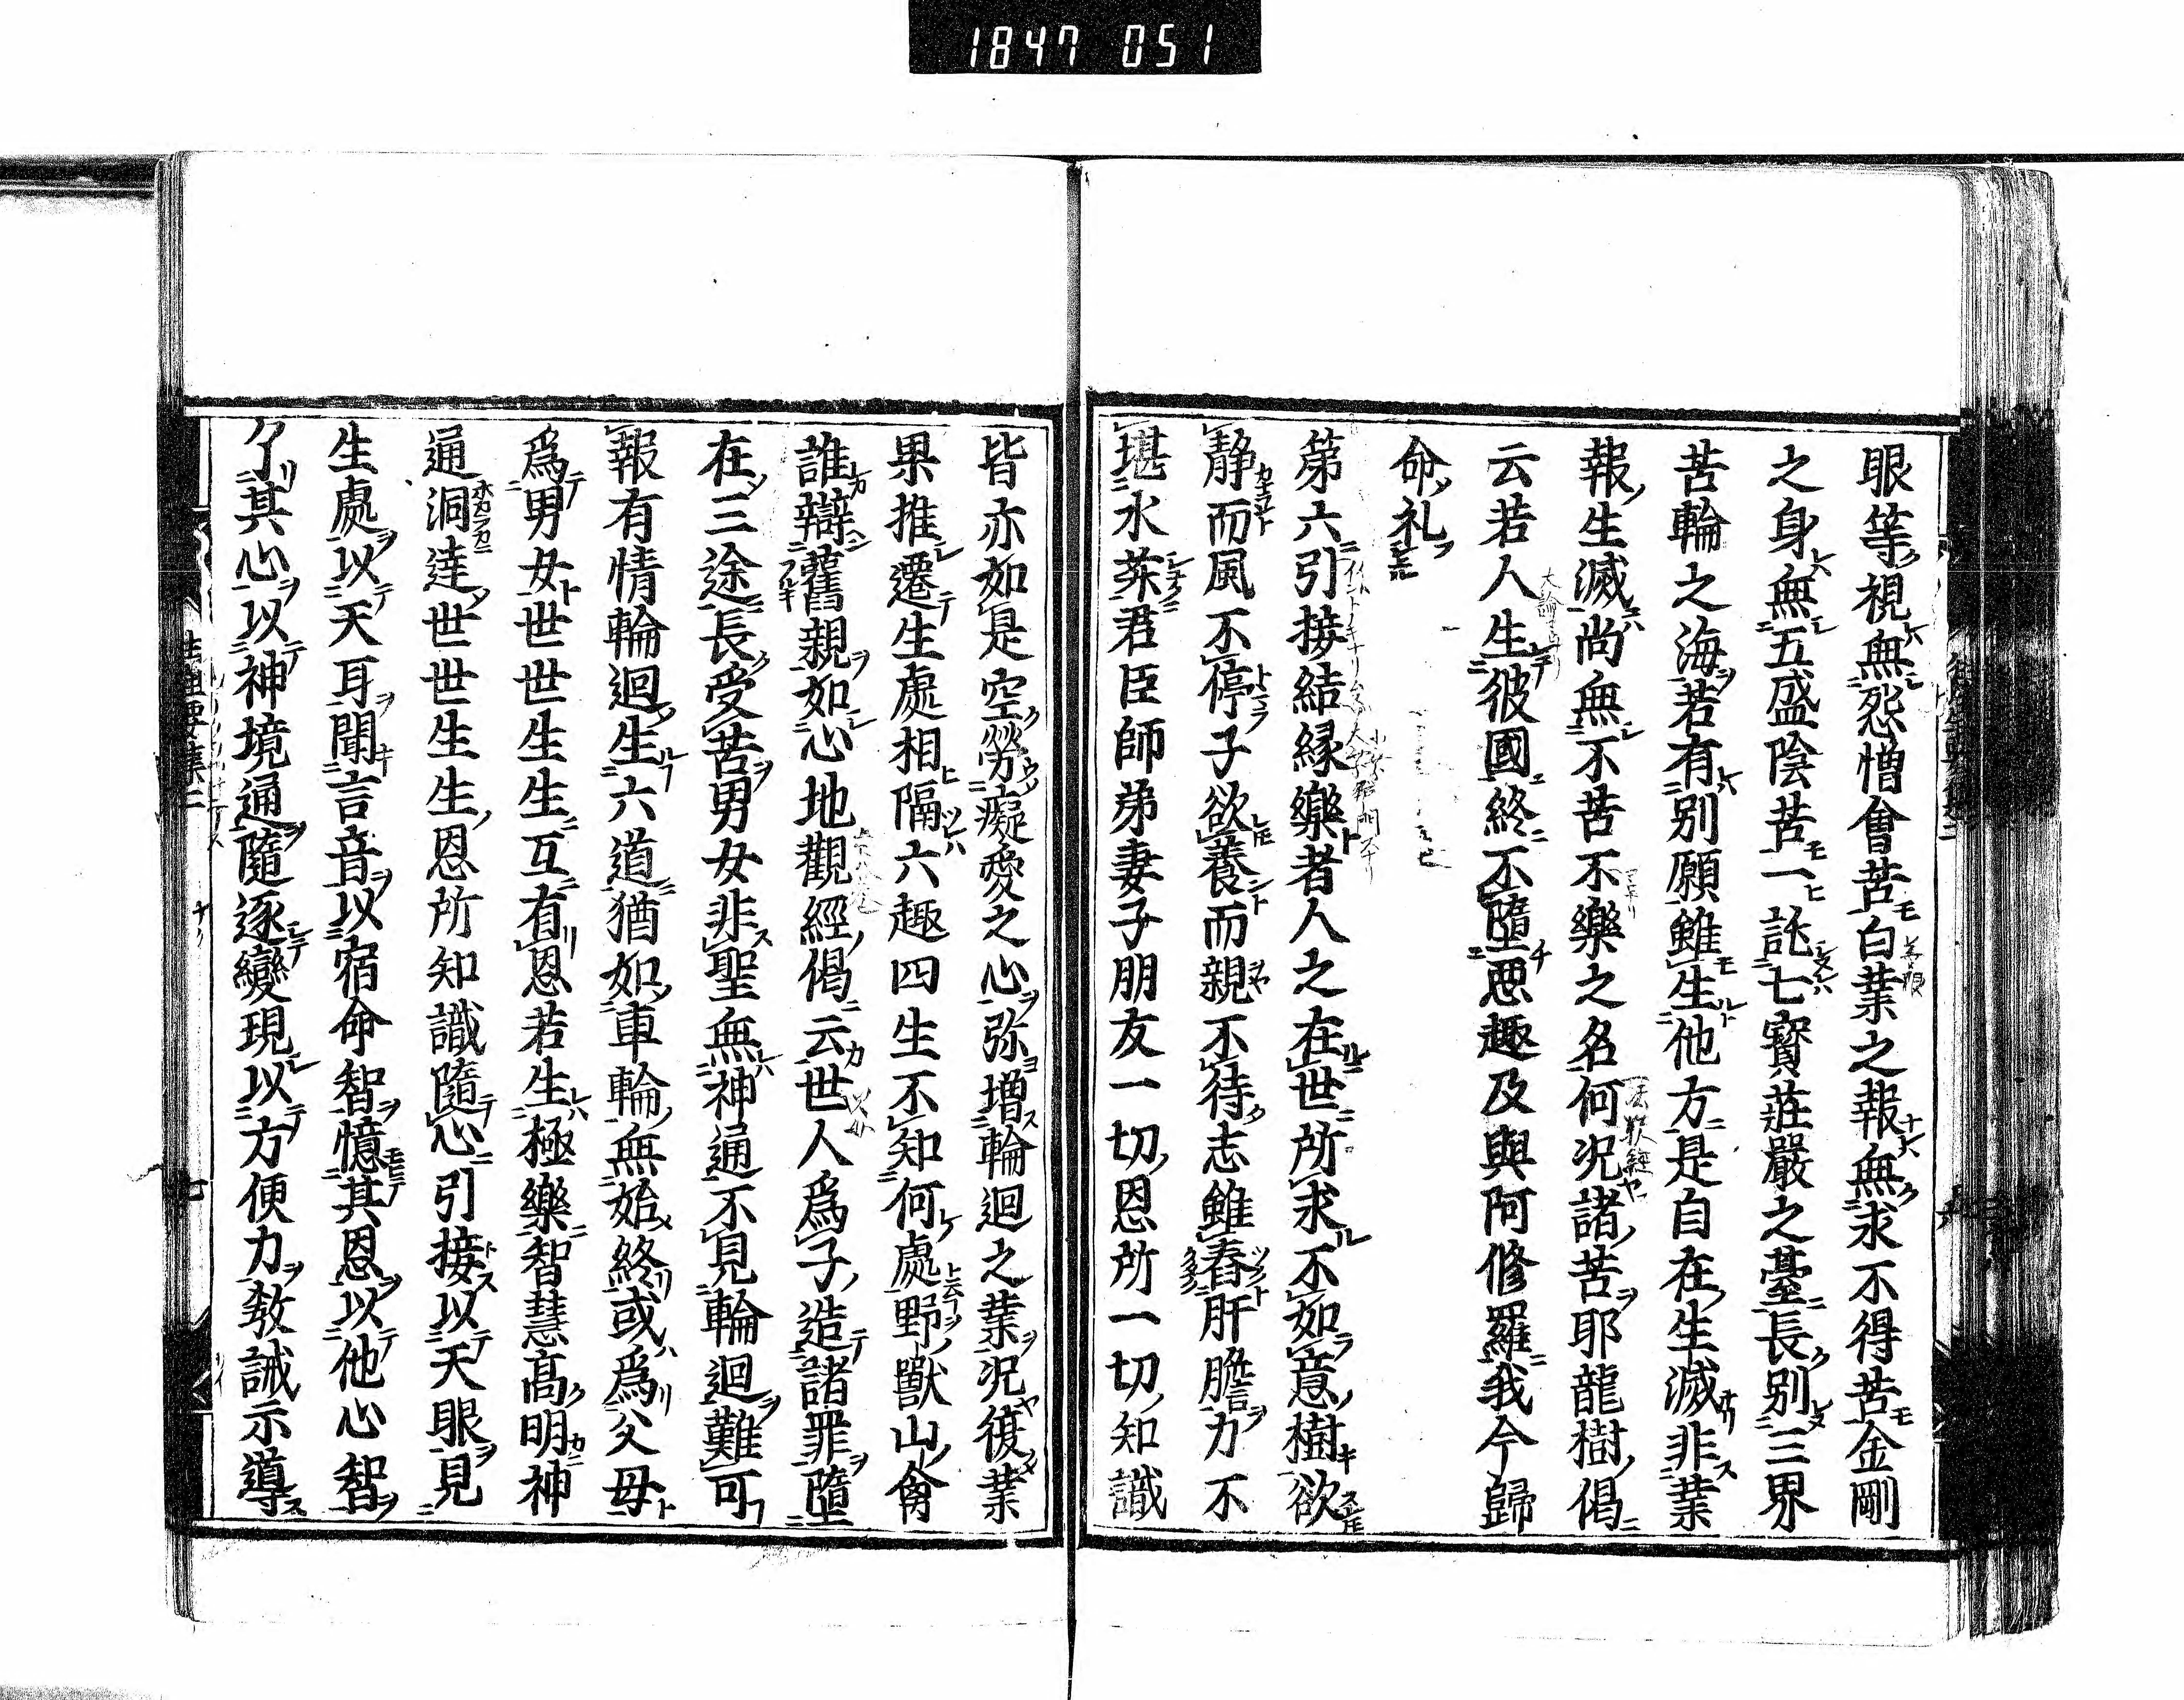 1847 051
眼等視無怨憎會苦白業之報無求不得苦金剛
之身無五盛陰苦一託七寳莊嚴之臺長別三界
苦輪之海若有別願雖生他方是自在生滅非業
報生滅尚無不苦不樂之名何況諸苦耶龍樹偈
云若人生彼國終不墮惡趣及與阿修羅我今歸
命礼
第六引接結縁樂者人之在世所求不如意樹欲
靜而風不停子欲養而親不待志雖舂肝膽力不
堪水菽君臣師弟妻子朋友一切恩所一切知識
皆亦如是空勞癡愛之心弥増輪迴之業況復業
果推遷生處相隔六趣四生不知何處野獸山禽
誰辯舊親如心地觀經偈云世人爲子造諸罪墮
在三途長受苦男女非聖無神通不見輪迴難可
報有情輪迴生六道猶如車輪無始終或爲父母
爲男女世世生生互有恩若生極樂智慧髙明神
通洞達世世生生恩所知識隨心引接以天眼見
生處以天耳聞言音以宿命智憶其恩以他心智
了其心以神境通隨逐變現以方便力敎誡示導